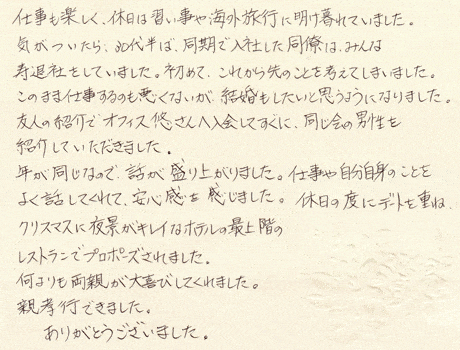 仕事も楽しく、休日は習い事や海外旅行に明け暮れていました。
気がついたら、30代半ば、同期で入社した同僚は、みんな
寿退社をしていました。初めて、これから先のことを考えてしまいました。
このまま仕事するのも悪くないが、結婚もしたいと思うようになりました。
友人の紹介でオフィス悠さんへ入会してすぐに、同じ会の男性を
紹介していただきました。
年が同じなので、話が盛り上がりました。仕事や自分自身のことを
よく話してくれて、安心感を感じました。休日の度にデートを重ね、
クリスマスに夜景がキレイなホテルの最上階の
レストランでプロポーズされました。
何よりも両親が大喜びしてくれました。
親孝行できました。
ありがとうございました。